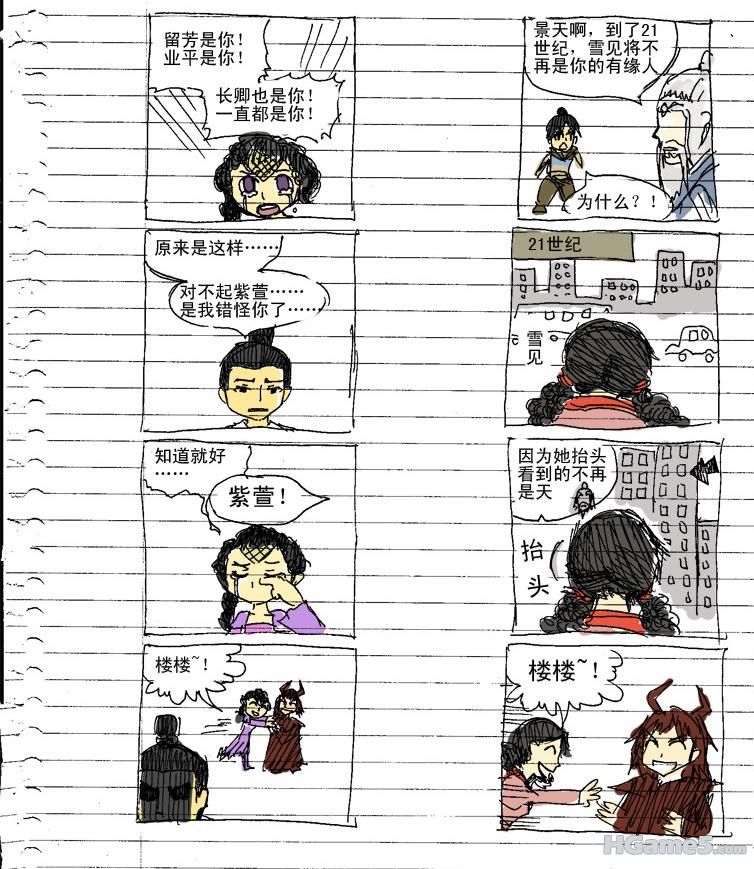 留芳是你！
业平是你！
长卿也是你！
一直都是你！
原来是这样……
对不起紫萱……
是我错怪你了……
知道就好
……
紫萱！
楼楼~！
景天啊，到了21
世纪，雪见将不
再是你的有缘人
为什么？！
21世纪
雪
见
因为她抬头
看到的不再
是天
抬
头
楼楼~！
HGame5.com